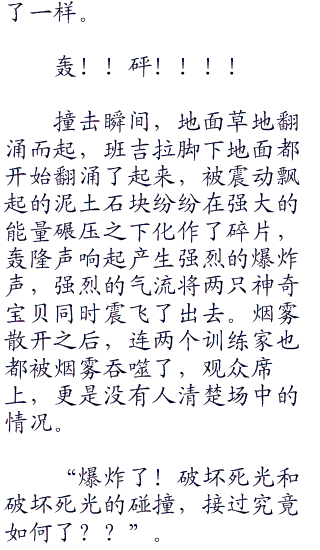 了一样。
轰！！砰！！！！
撞击瞬间，地面草地翻
涌而起，班吉拉脚下地面都
开始翻涌了起来，被震动飘
起的泥土石块纷纷在强大的
能量碾压之下化作了碎片，
轰隆声响起产生强烈的爆炸
声，强烈的气流将两只神奇
宝贝同时震飞了出去。烟雾
散开之后，连两个训练家也
都被烟雾吞噬了，观众席
上，更是没有人清楚场中的
情况。
“爆炸了！破坏死光和
破坏死光的碰撞，接过究竟
如何了？？”。